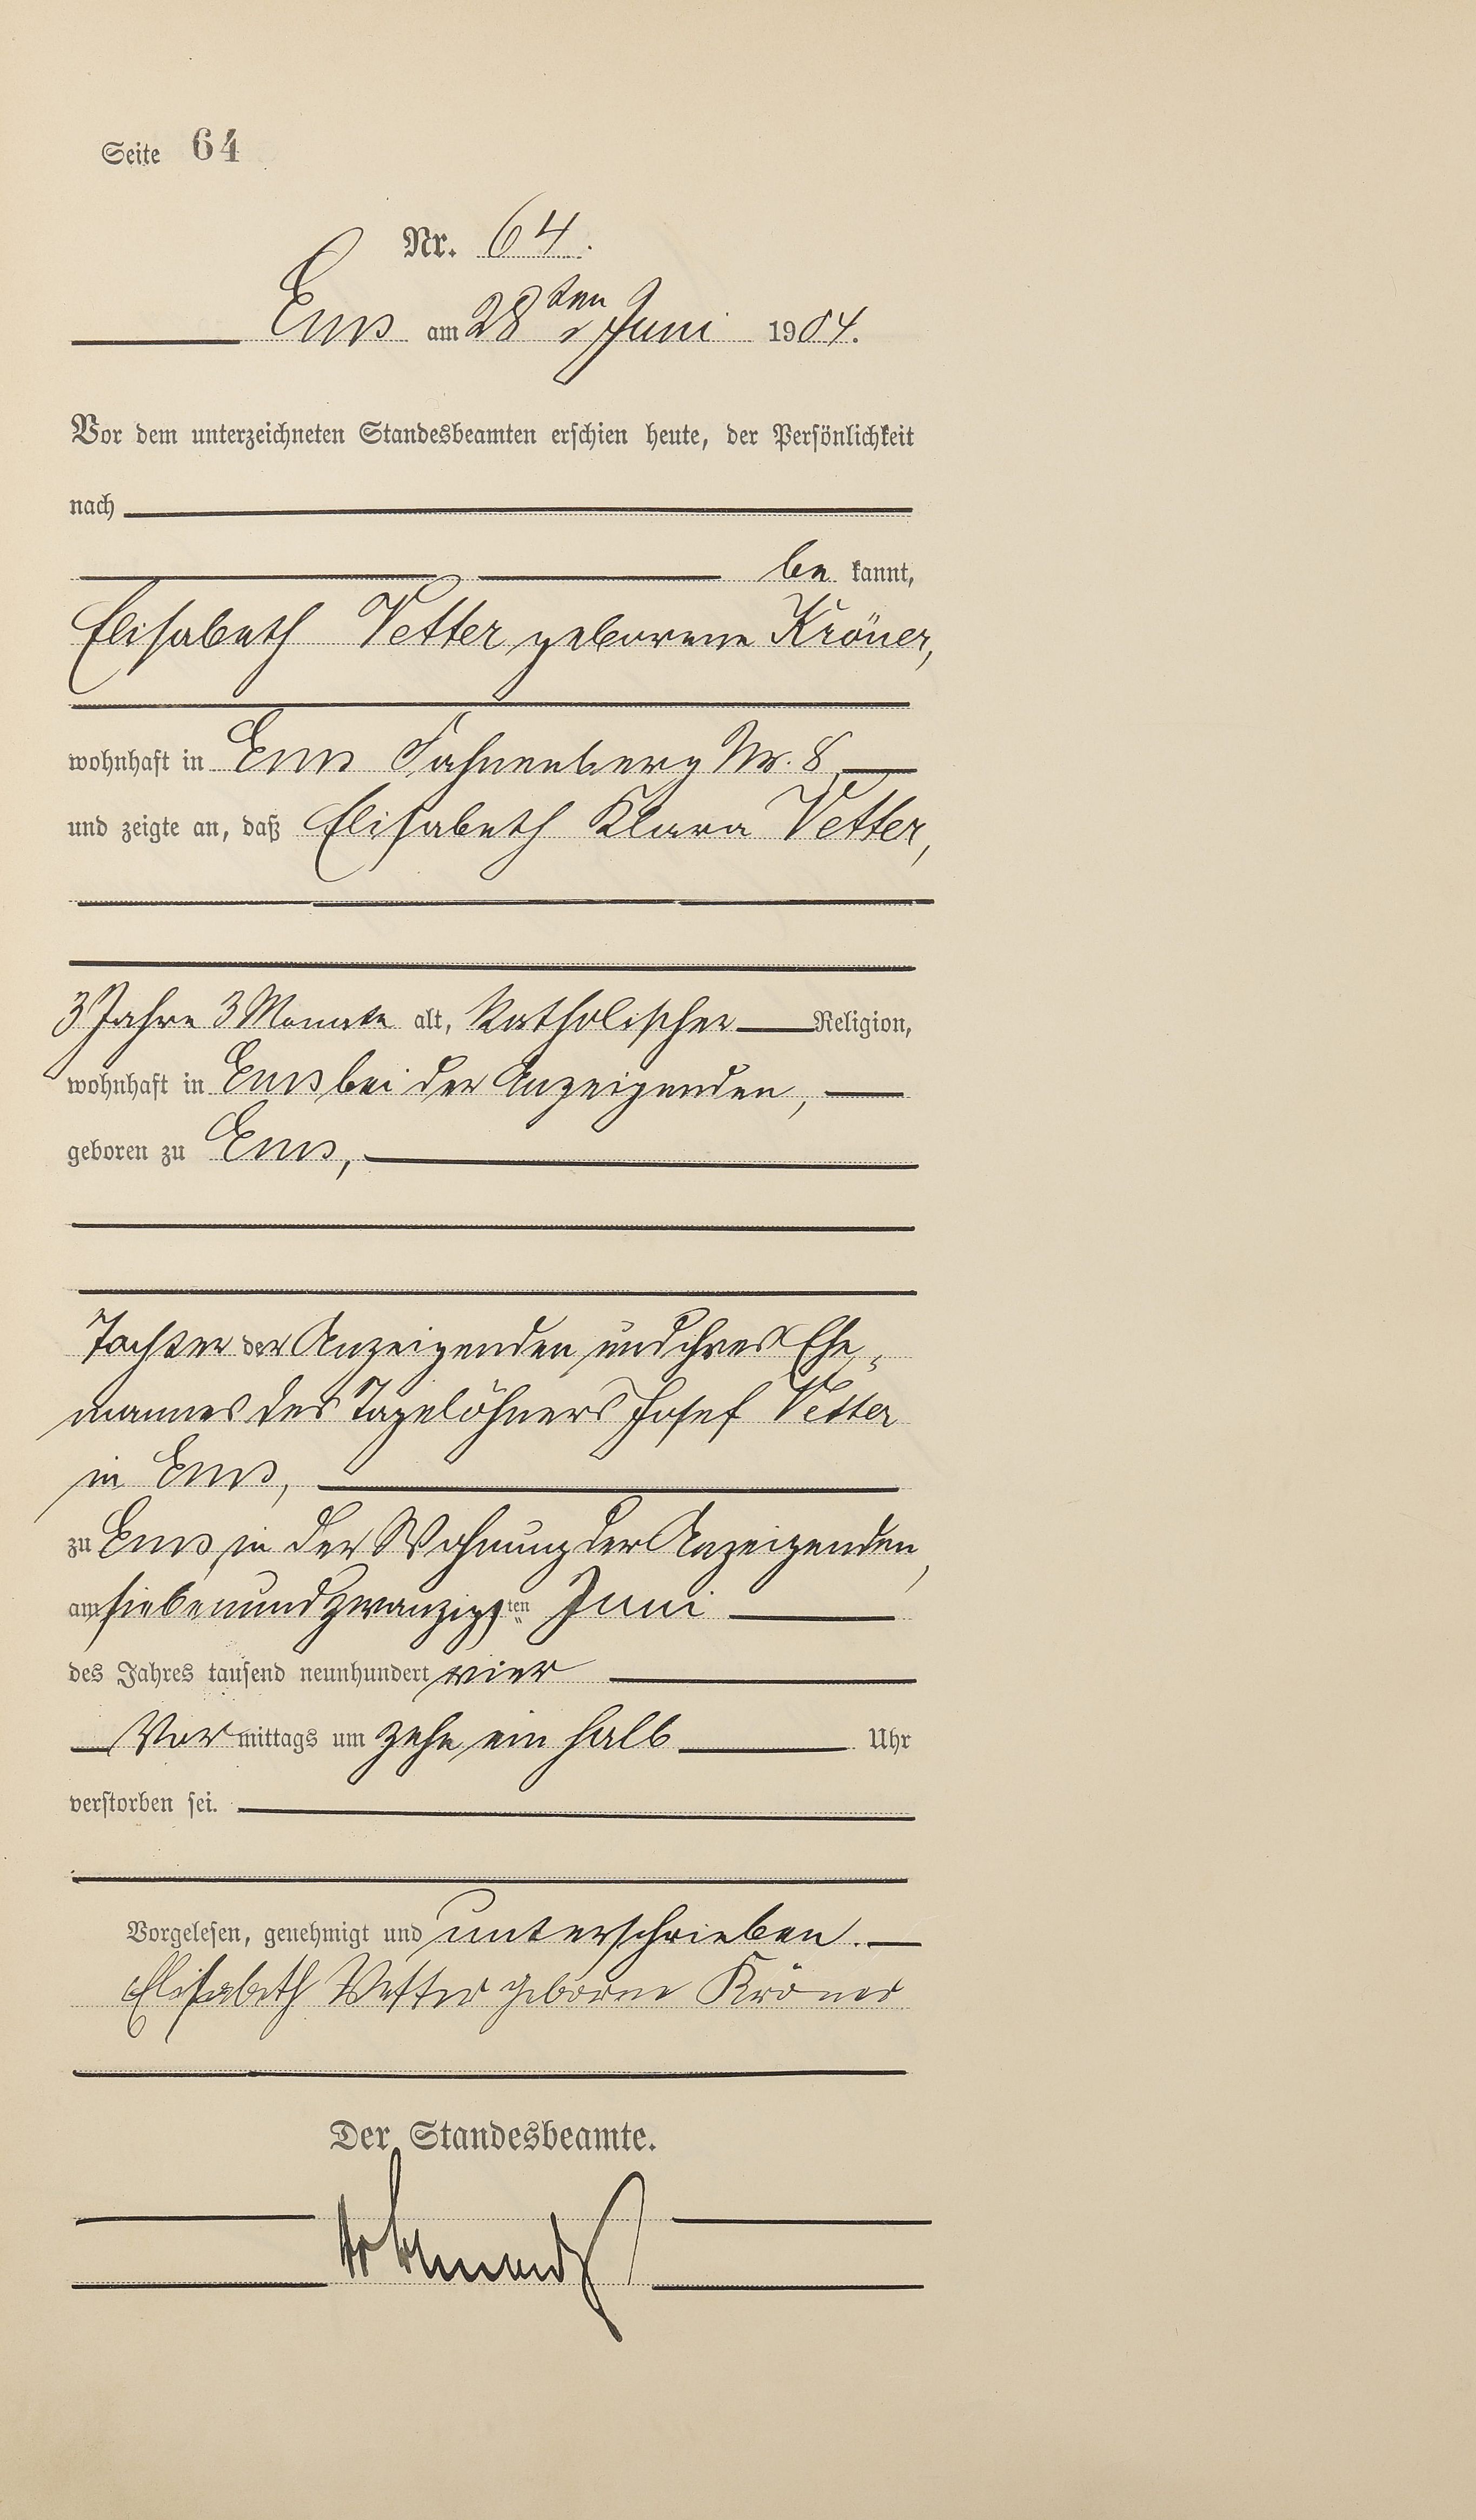 Seite 64
Nr. 64.
Ems am 28ten Juni 1904.
Vor dem unterzeichneten Standesbeamten erschien heute, der Persönlichkeit
nach
be kannt,
Elisabeth Vetter geborene Kröner,
wohnhaft in Ems Fahnenberg Nr. 8
und zeigte an, daß Elisabeth Klara Vetter,
3 Jahre 3 Monate alt, katholischer Religion,
wohnhaft in Ems bei der Anzeigenden,
geboren zu Ems,
Tochter der Anzeigenden und ihres Ehe-
mannes des Tagelöhners Josef Vetter
in Ems,
zu Ems, in der Wohnung der Anzeigenden,
am siebenundzwanzigsten Juni
des Jahres tausend neunhundert vier
Vor mittags um zehn ein halb Uhr
verstorben sei.
Vorgelesen, genehmigt und unterschrieben.
Elisabeth Vetter geborne Kröner
Der Standesbeamte.